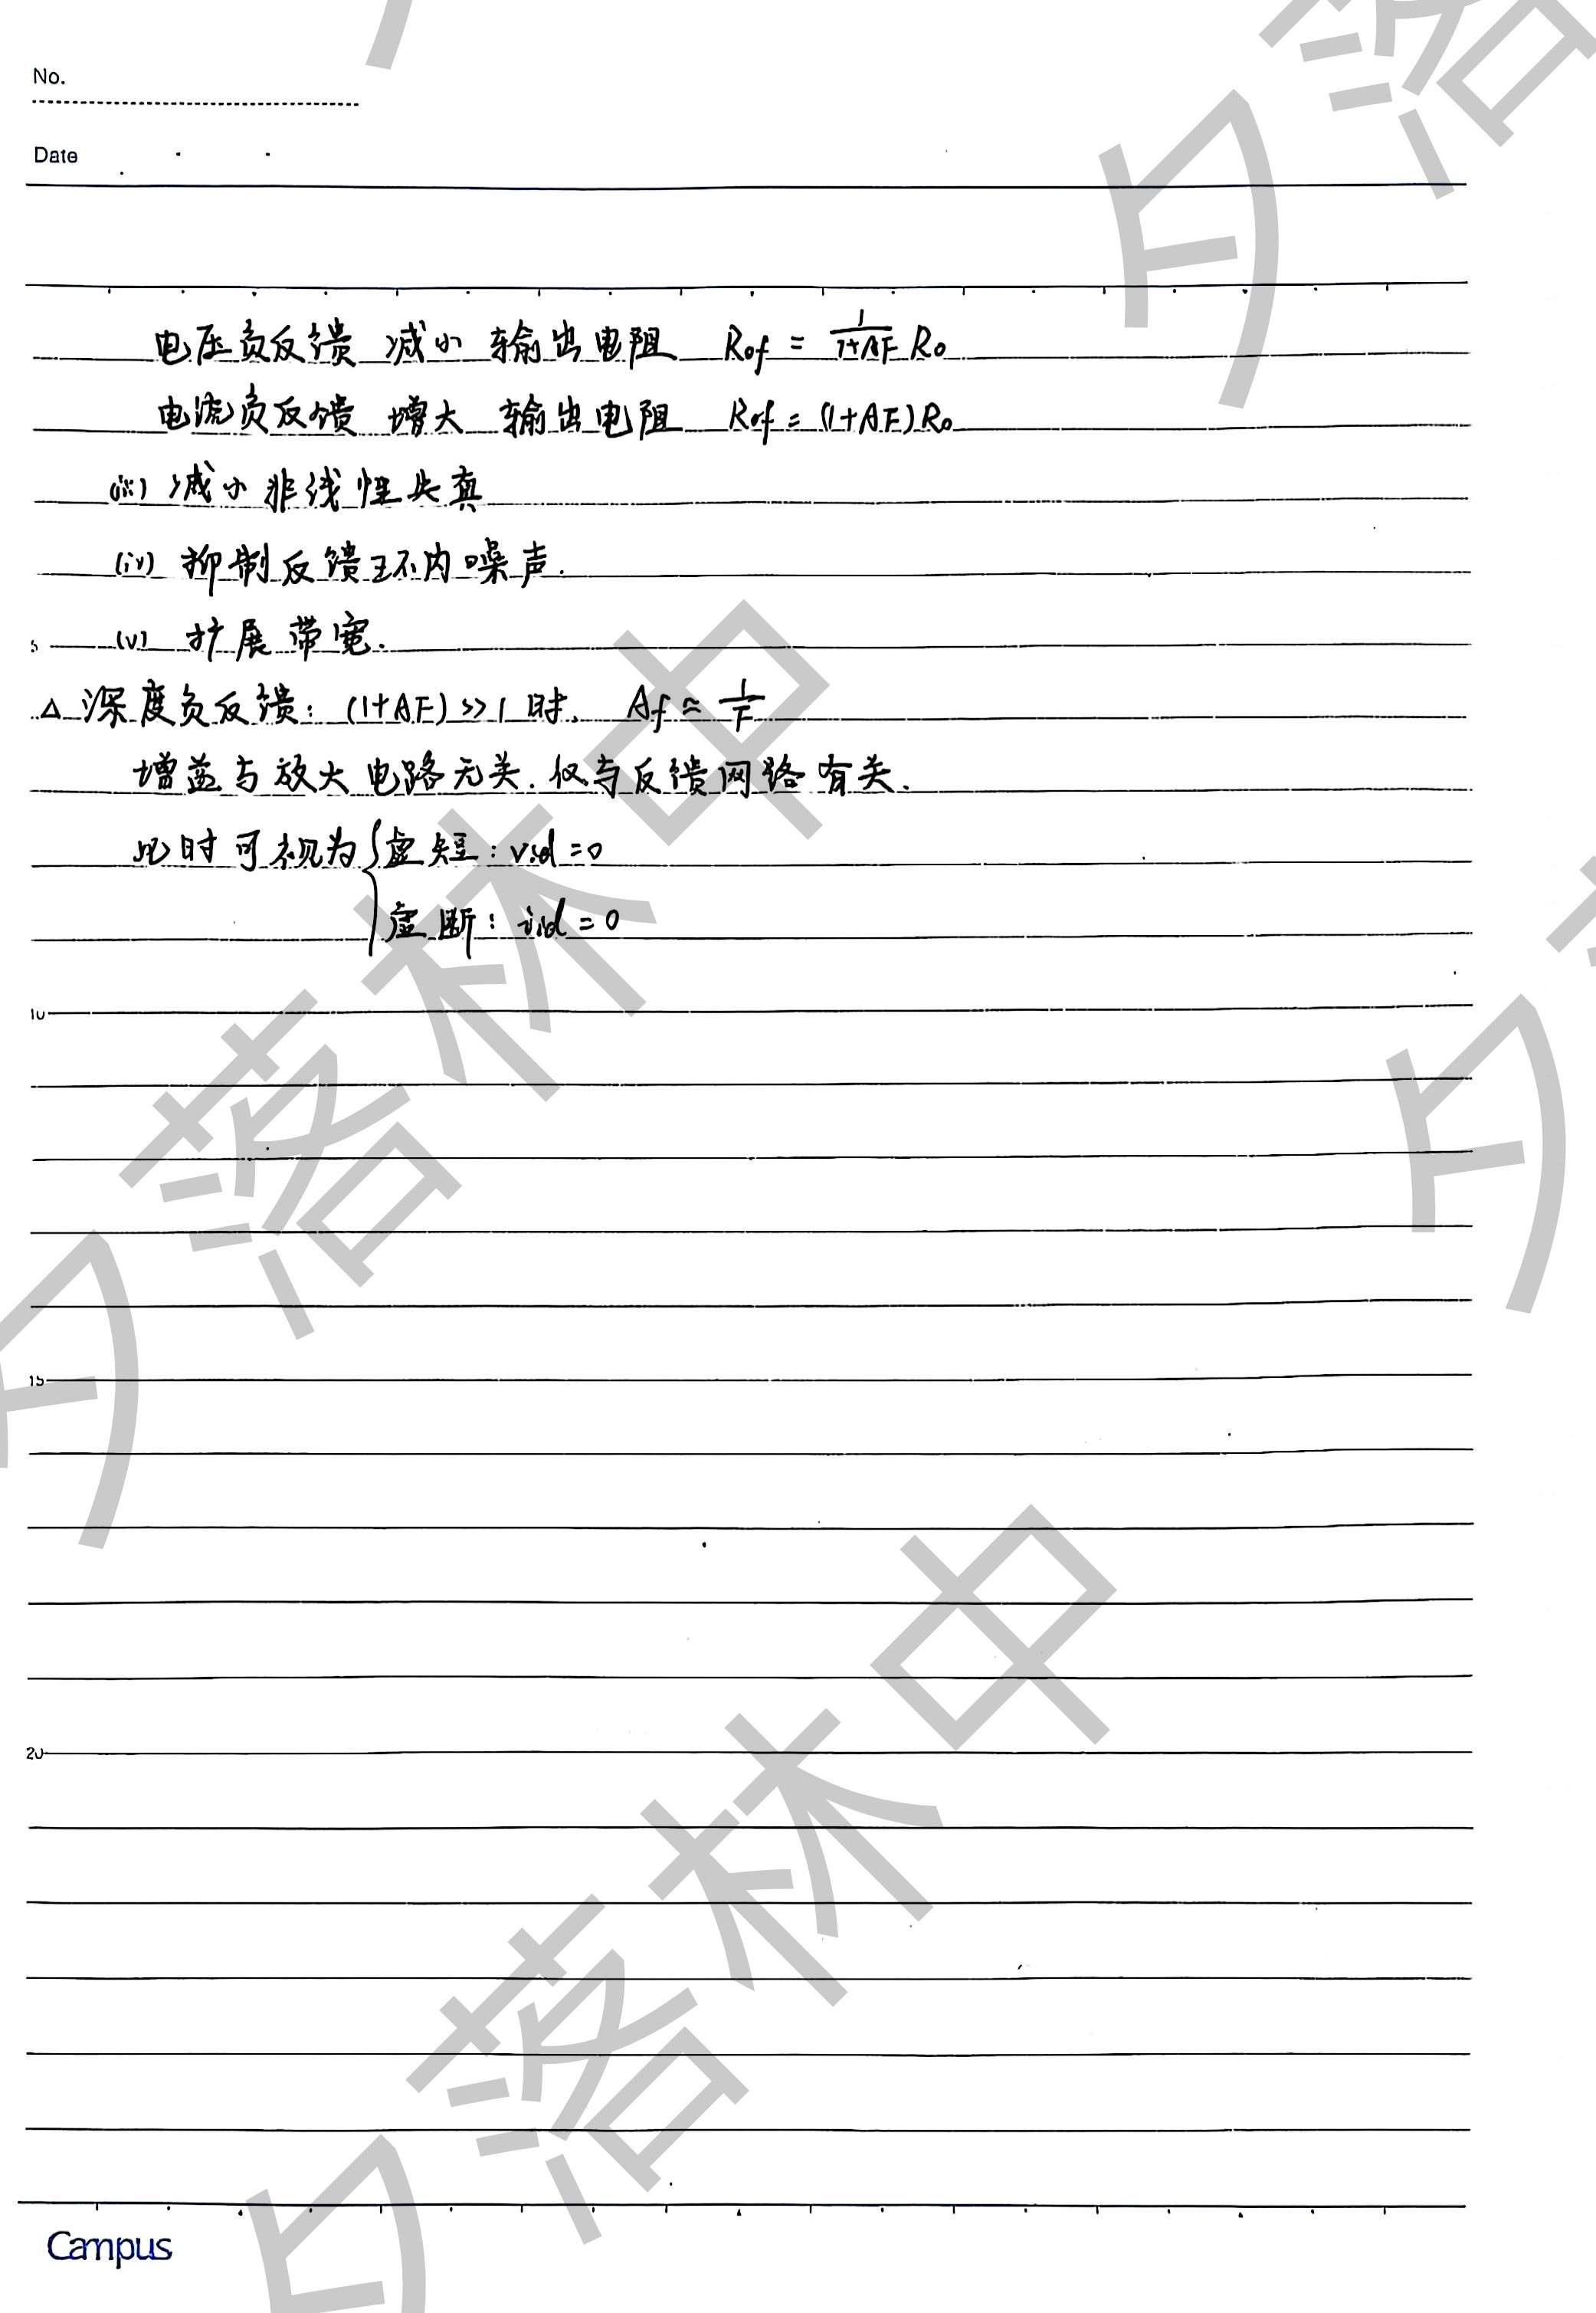 No.
Date
电压负反馈 减小 输出电阻 Rof = 1/(1+AF) Ro
电流负反馈 增大 输出电阻 Rof = (1+AF)Ro
(iii) 减小非线性失真
(iv) 抑制反馈环内噪声.
5 (v) 扩展带宽.
△ 深度负反馈: (1+AF)>>1 时, Af ≈ 1/F
增益与放大电路无关. 仅与反馈网络有关.
此时可视为{虚短: vid=0
虚断: iid=0
10
15
20
Campus
夕落林中
夕落林中
夕落
夕